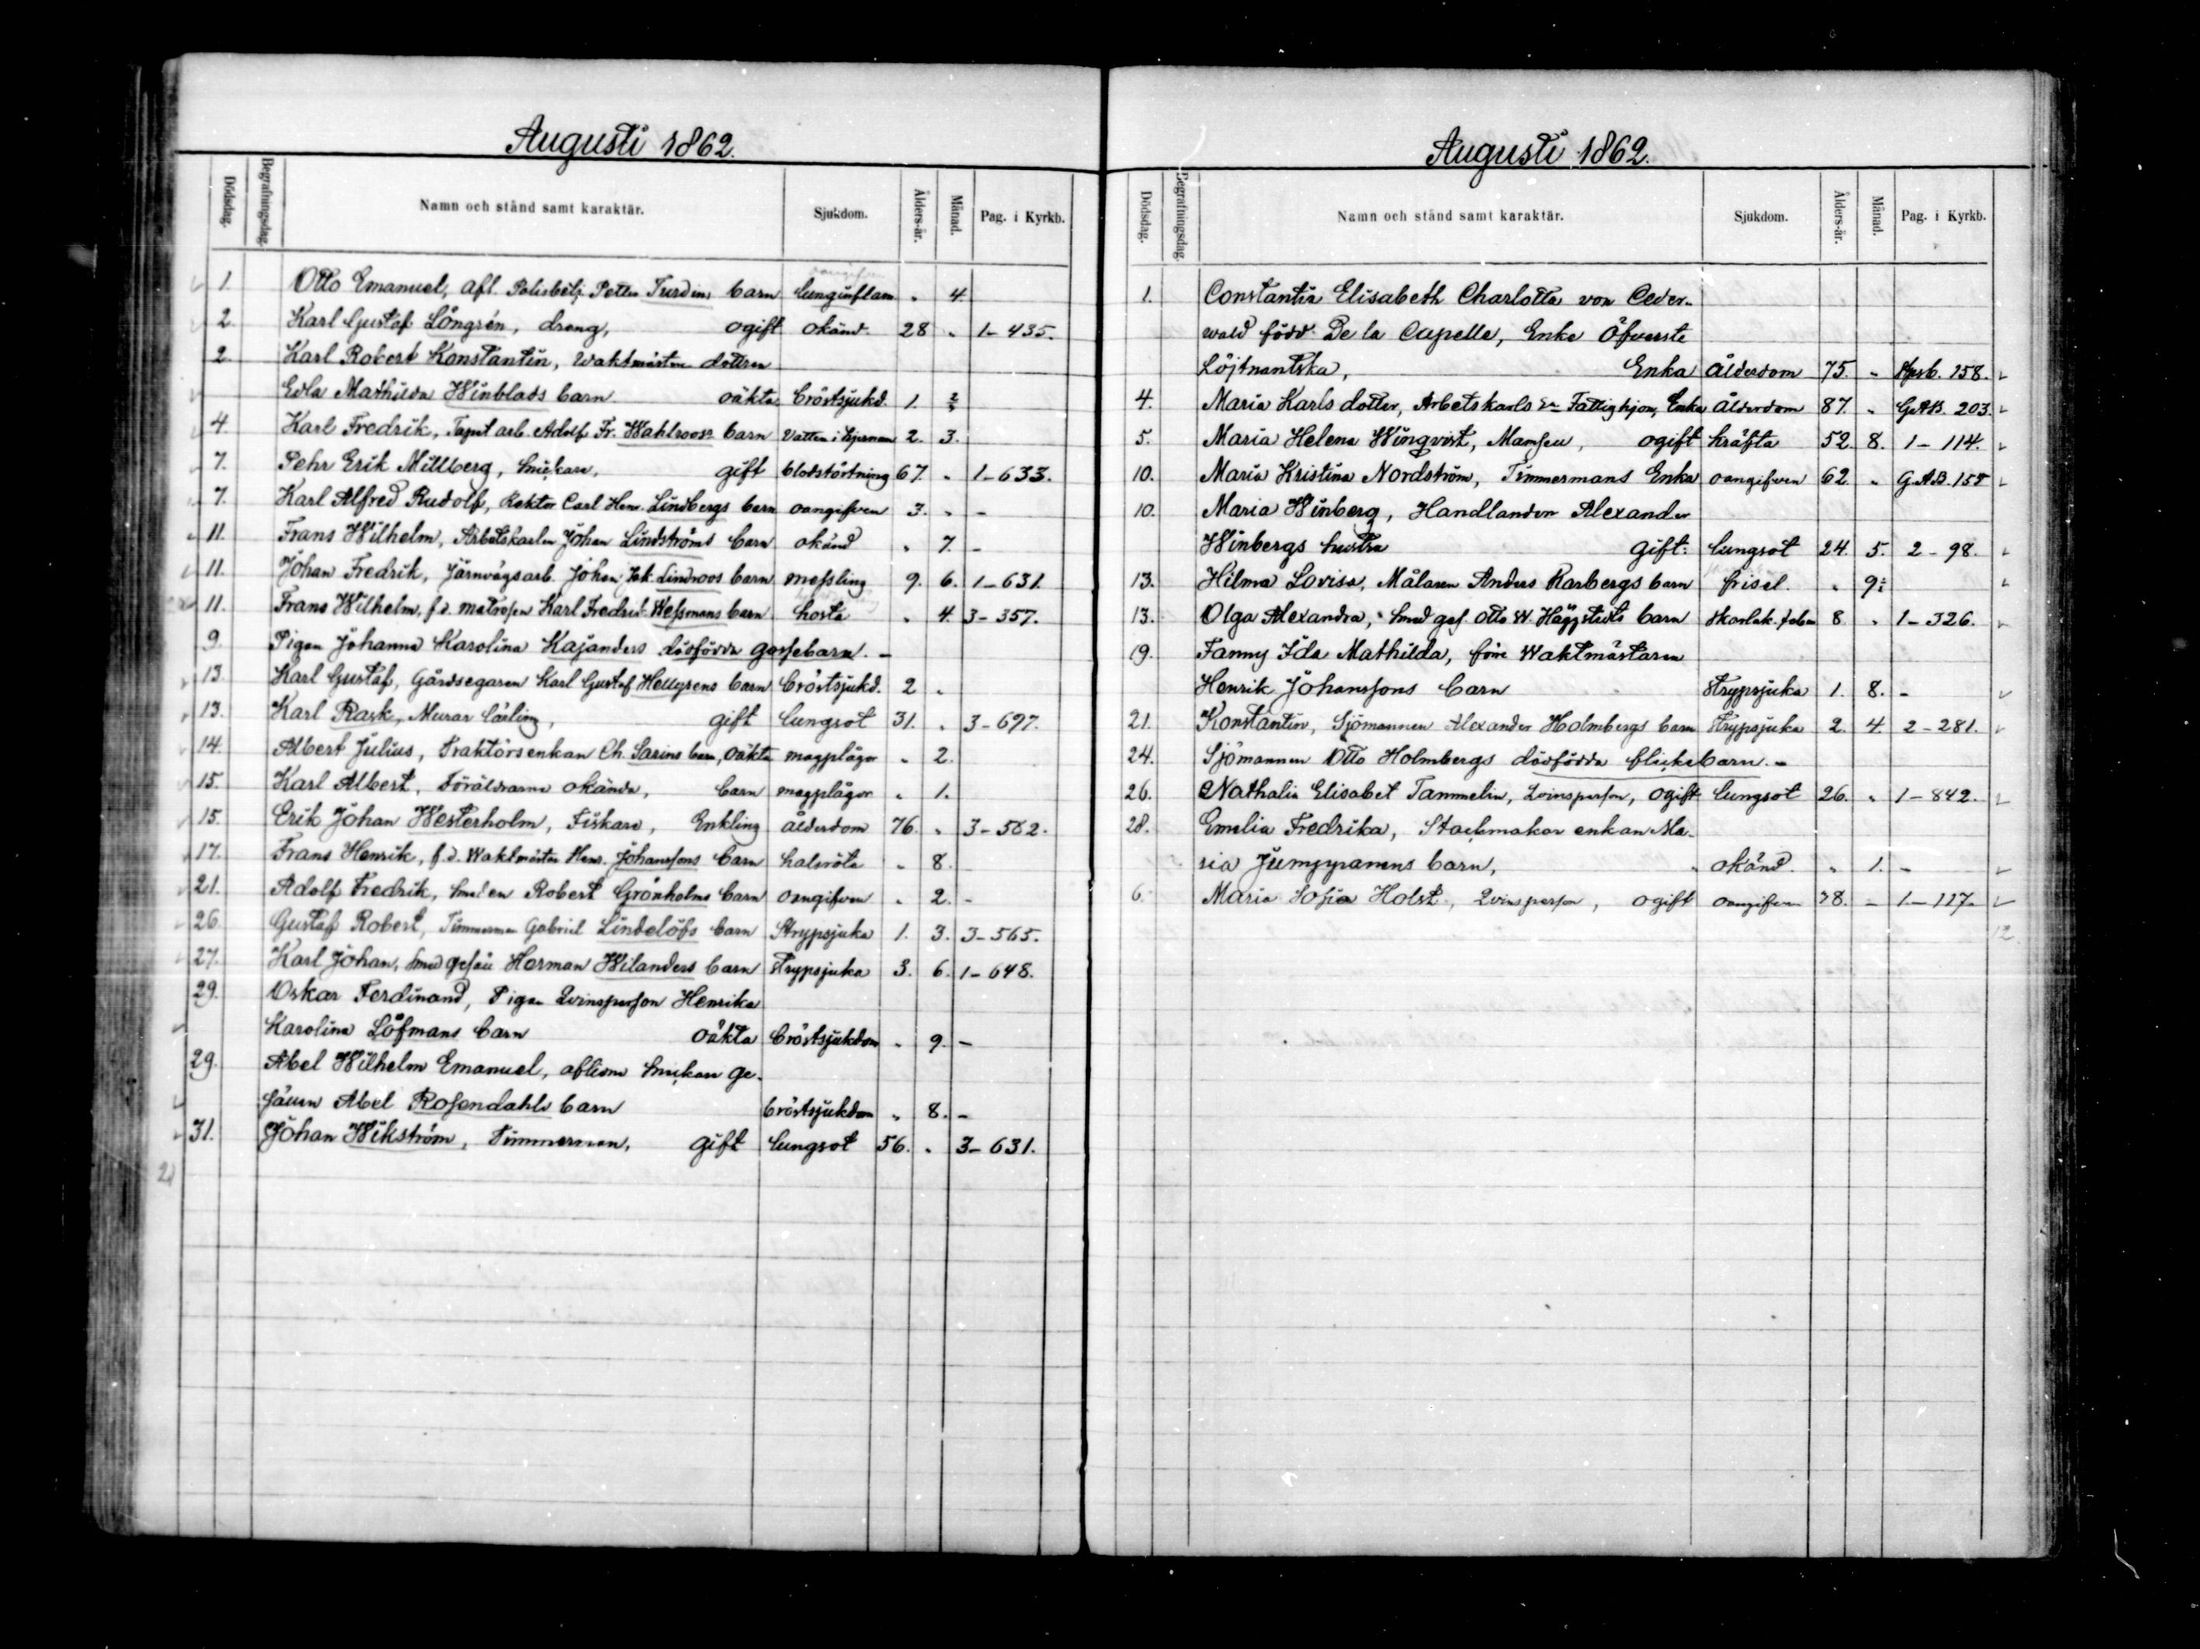 Augusti 1862.
Dödsdag. Begrafningsdag. Namn och stånd samt karaktär. Sjukdom. Ålders-år. Månad. Pag. i Kyrkb.
oangifven
1. Otto Emanuel, afl. Polisbetj. Petter Turdins barn lunginflam „ 4
2. Karl Gustaf Långrén, dreng, ogift okänd 28 „ 1-435.
2. Karl Robert Konstantin, Waktmästare dottren
Edla Mathilda Winblads barn oäkta bröstsjukd. 1.
4. Karl Fredrik, Tapet arb. Adolf Fr. Wahlroos barn Vatten i hjernan 2. 3.
7. Pehr Erik Millberg, Snickare, gift blodstörtning 67. „ 1-633.
7. Karl Alfred Rudolf, Rektor Carl Henr. Lindbergs barn oangifven 3. „ -
11. Frans Wilhelm, Arbetskarlen Johan Lindströms barn okänd „ 7. -
11. Johan Fredrik, Järnvägsarb. Johan Jak. Lindroos barn messling 9. 6. 1-631.
11. Frans Wilhelm, f.d. matrosen Karl Fredrik Wessmans barn hosta „ 4. 3-357.
9. Pigan Johanna Karolina Kajanders dödfödda gossebarn. -
13. Karl Gustaf, Gårdsegaren Karl Gustaf Hellgrens barn bröstsjukd. 2 „
13. Karl Rask, Murar lärling, gift lungsot 31. „ 3-697.
14. Albert Julius, Traktörsenkan Ch. Sarins barn, oäkta magplågor „ 2.
15. Karl Albert, Föräldrarna okända, barn magplågor „ 1.
15. Erik Johan Westerholm, Fiskare, Enkling ålderdom 76. „ 3-582.
17. Frans Henrik, f.d. Waktmästar Henr. Johanssons barn halsröta „ 8.
21. Adolf Fredrik, Smeden Robert Grönholms barn oangifven „ 2. -
26. Gustaf Robert, Timmerman Gabriel Lindelöfs barn Strypsjuka 1. 3. 3-565.
27. Karl Johan, Smed gesäll Herman Wilanders barn Strypsjuka 3. 6. 1-648.
29. Oskar Ferdinand, Pigan Qvinsperson Henrika
Karolina Löfmans barn oäkta bröstsjukdom „ 9. -
29. Abel Wilhelm Emanuel, aflidne Snickare ge-
sällen Abel Rosendahls barn bröstsjukdom „ 8. -
31. Johan Wikström, Timmerman, gift lungsot 56. „ 3-631.
21
Augusti 1862.
Dödsdag. Begrafningsdag. Namn och stånd samt karaktär. Sjukdom. Ålders-år. Månad. Pag. i Kyrkb.
1. Constantia Elisabeth Charlotta von Ceder-
wald född De la Capelle, Enka Öfverste
Löjtnantska, Enka Ålderdom 75. „ 158.
4. Maria Karls dotter, Arbetskarls Fattighjon, Enka Ålderdom 87. „ G.A.B. 203.
5. Maria Helena Winqvist, Mamsell, ogift kräfta 52. 8. 1-114.
10. Maria Kristina Nordström, Timmermans Enka oangifven 62 „ G.A.B. 158
10. Maria Winberg, Handlanden Alexander
Winbergs hustru gift: lungsot 24. 5. 2-98.
13. Hilma Lovisa, Målaren Anders Karbergs barn frisel. „ 9.
13. Olga Alexandra, Smed ges. Otto W. Häggstedts barn Skarlak. feber 8. „ 1-326.
19. Fanny Ida Mathilda, före Waktmästaren
Henrik Johanssons barn Strypsjuka 1. 8. -
21. Konstantin, Sjömannen Alexander Holmbergs barn Strypsjuka 2. 4. 2-281.
24. Sjömannen Otto Holmbergs dödfödda flickebarn. -
26. Nathalia Elisabet Tammelin, Qvinsperson, ogift lungsot 26. „ 1-842.
28. Emelia Fredrika, Stackmakar enkan Ma-
ria barn, okänd. „ 1. -
6. Maria Sofia Holst, Qvinsperson, ogift oangifven 28. - 1-117.
12.